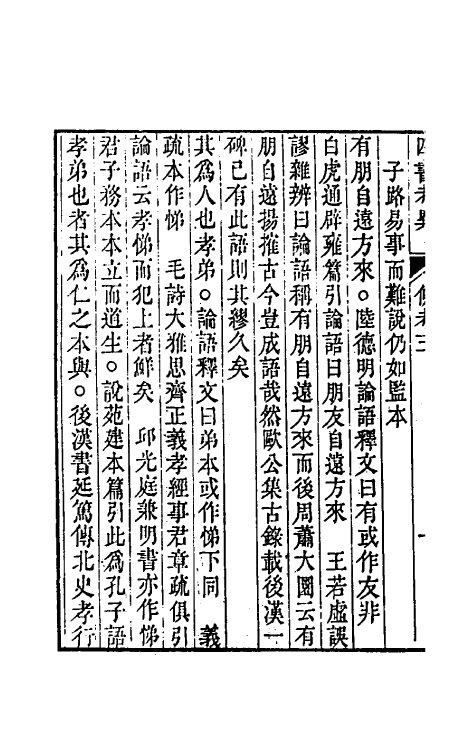 四書考異
條考三
一
子路易事而難說仍如監本
有朋自遠方來○陸德明論語釋文曰有或作友非
白虎通辟雍篇引論語曰朋友自遠方來　王若虛誤
謬雜辨曰論語稱有朋自遠方來而後周蕭大圜云有
朋自遠揚搉古今豈成語哉然歐公集古錄載後漢一
碑已有此語則其繆久矣
其爲人也孝弟○論語釋文曰弟本或作悌下同　義
疏本作悌　毛詩大雅思齊正義孝經事君章疏俱引
論語云孝悌而犯上者鮮矣　邱光庭兼明書亦作悌
君子務本本立而道生○說苑建本篇引此爲孔子語
孝弟也者其爲仁之本與○後漢書延篤傳北史孝行